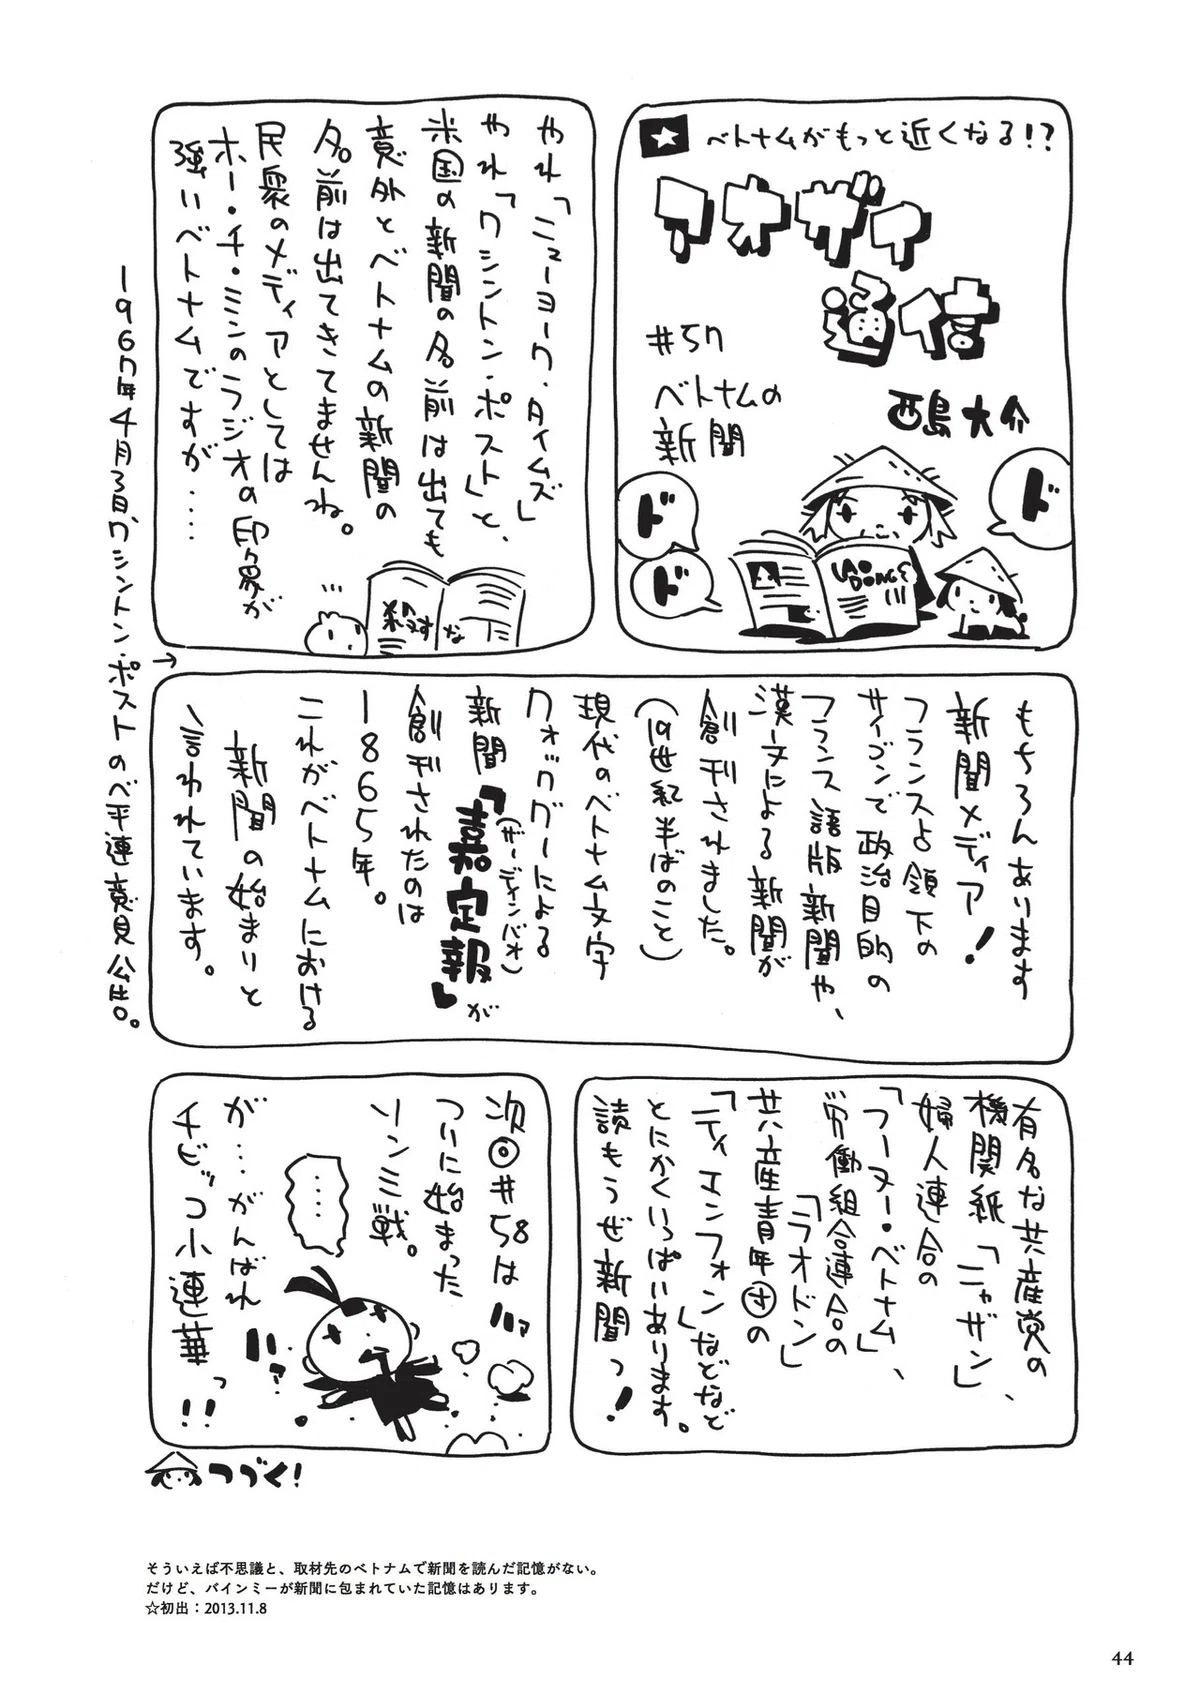 ベトナムがもっと近くなる!?
アオザイ
通信
#57
ベトナムの
新聞
西島大介
ド
ド
ド
LAO
DONG
やれ「ニューヨーク・タイムズ」
やれ「ワシントン・ポスト」と、
米国の新聞の名前は出ても
意外とベトナムの新聞の
名前は出てきてませんね。
民衆のメディアとしては
ホー・チ・ミンのラジオの印象が
強いベトナムですが……
殺すな
1967年4月3日、ワシントン・ポストのベ平連意見公告。
もちろんあります
新聞メディア!
フランス占領下の
サイゴンで政治目的の
フランス語版新聞や、
漢文による新聞が
創刊されました。
(19世紀半ばのこと)
現代のベトナム文字
クォックグーによる
新聞「嘉定報」が
(ザーディンバオ)
創刊されたのは
1865年。
これがベトナムにおける
新聞の始まりと
言われています。
有名な共産党の
機関紙「ニャザン」、
婦人連合の
「フーヌー・ベトナム」、
労働組合連合の
「ラオドン」
共産青年団の
「ティエンフォン」などなど
とにかくいっぱいあります。
読もうぜ新聞っ!
次回#58は
ついに始まった
ソンミ戦。
……
が…がんばれ
チビッコ小連華っ!!
ハァ
ハァ
つづく!
そういえば不思議と、取材先のベトナムで新聞を読んだ記憶がない。
だけど、バインミーが新聞に包まれていた記憶はあります。
☆初出：2013.11.8
44